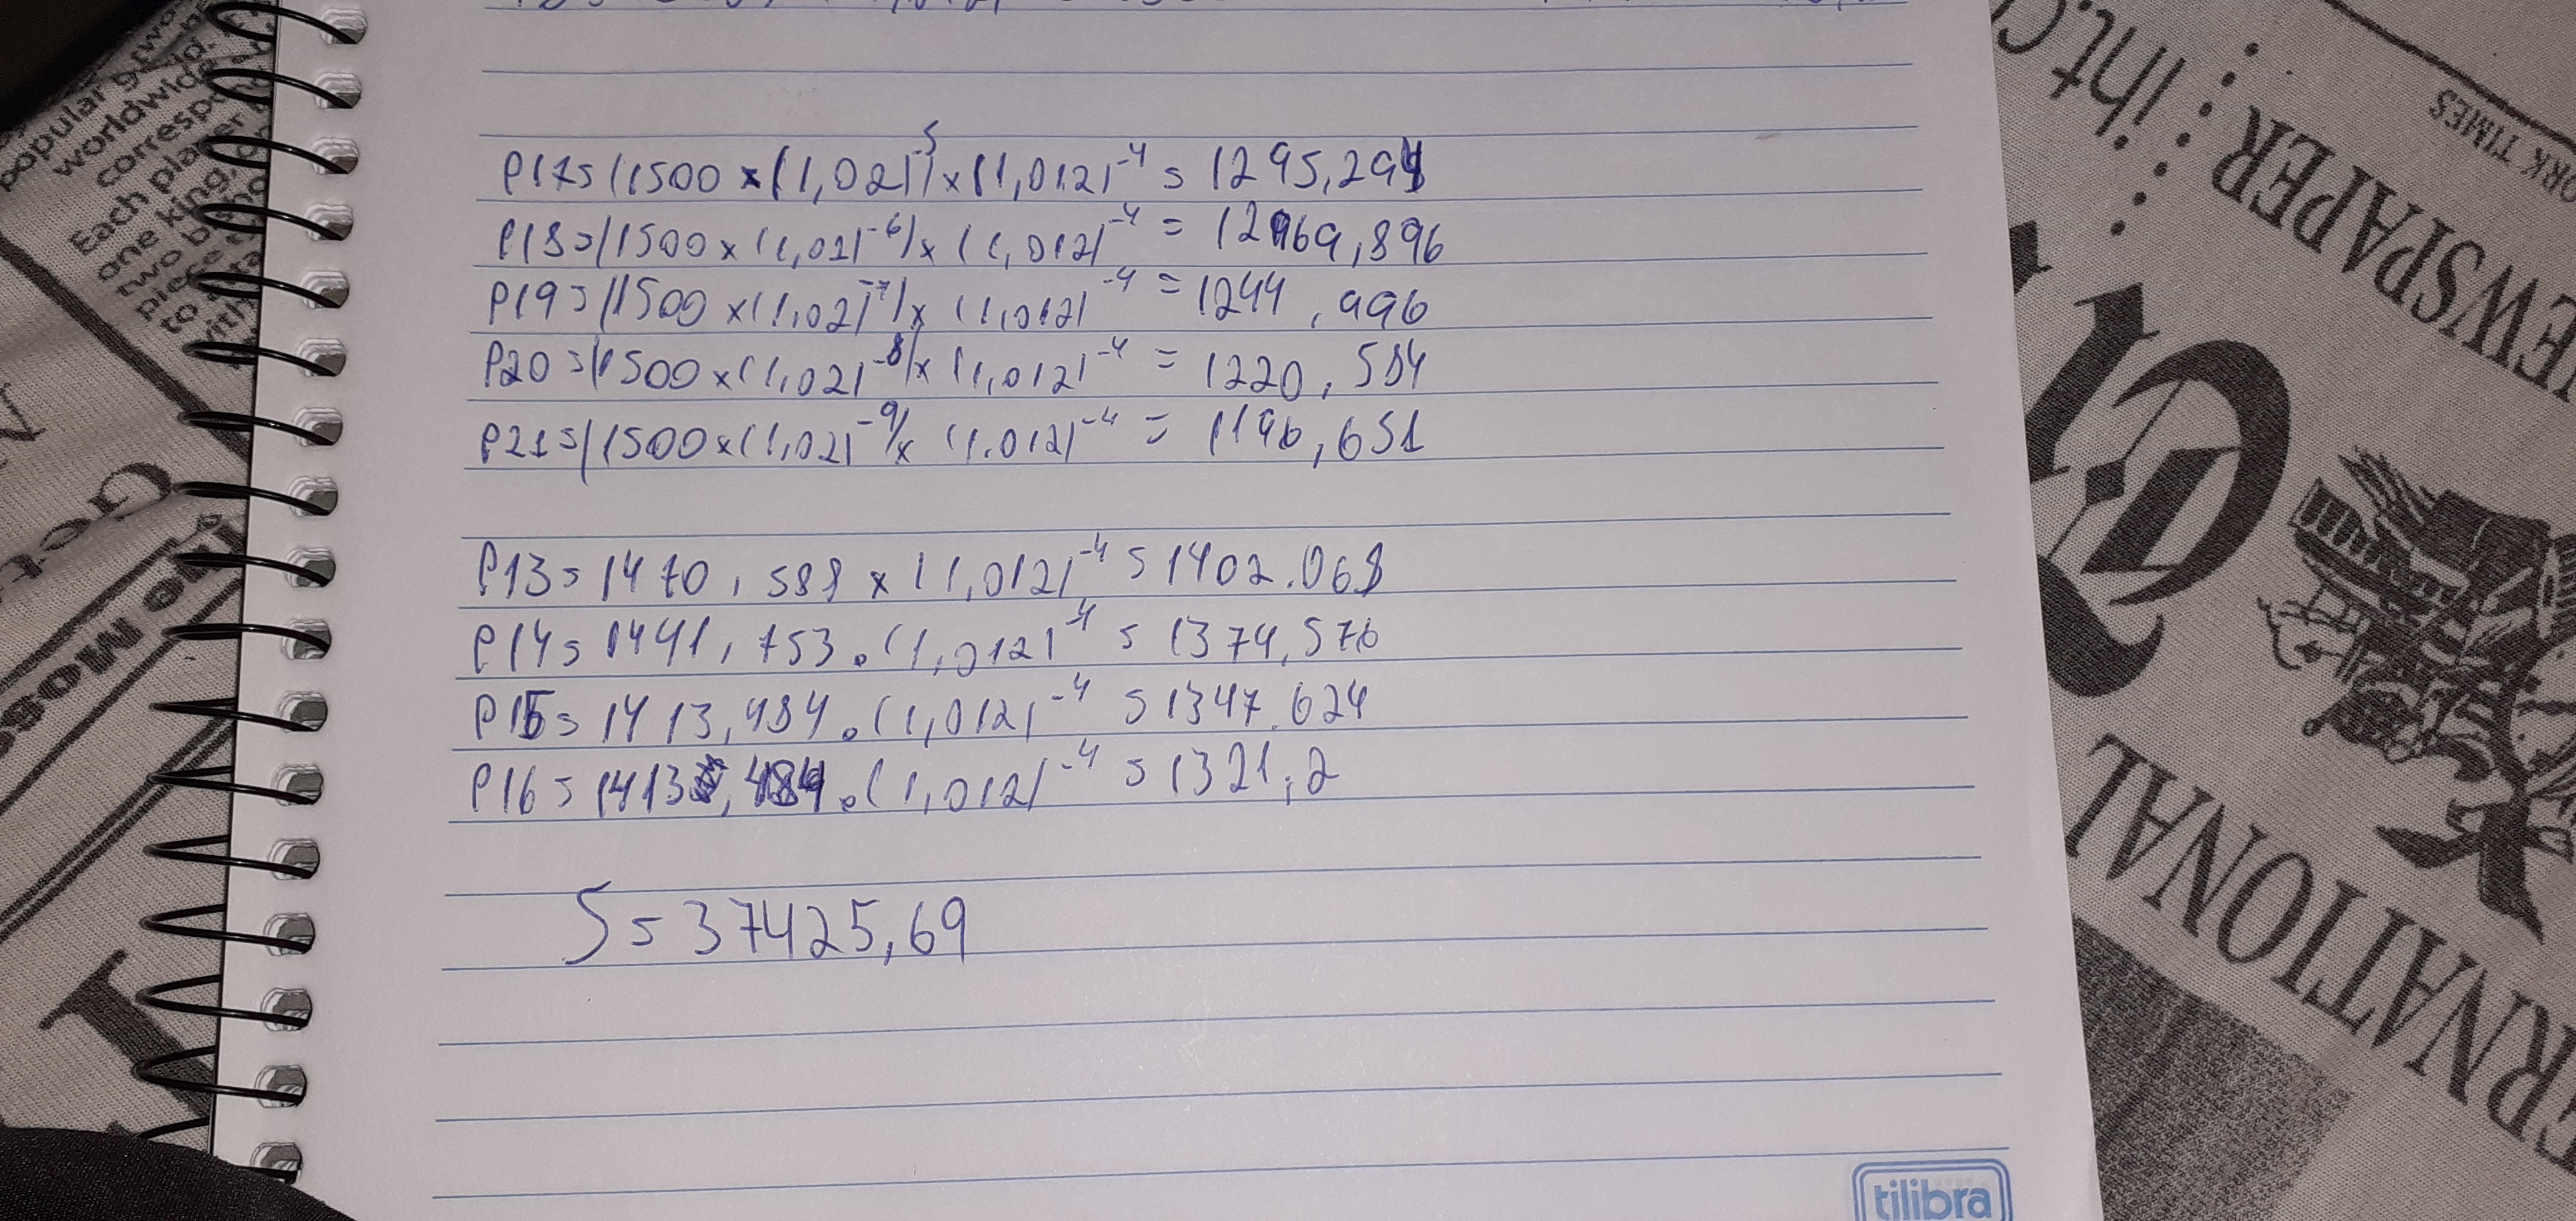 P17=(1500 x (1,02)^-5) x (1,012)^-4 = 1295,294
P18=(1500 x (1,02)^-6) x (1,012)^-4 = 12969,896
P19=(1500 x (1,02)^-7) x (1,012)^-4 = 1244,996
P20=(1500 x (1,02)^-8) x (1,012)^-4 = 1220,584
P21=(1500 x (1,02)^-9) x (1.012)^-4 = 1196,651
P13= 1470,588 x (1,012)^-4 = 1402.068
P14= 1441,753.(1,012)^-4 = 1374,576
P15= 1413,484.(1,012)^-4 = 1347.624
P16= 1413,484.(1,012)^-4 = 1321,2
S = 37425,69
tilibra
popular
worldwide.
corresp
Each pla
one king,
two b
piece
to
with
Get
Mos
iht.c
TIMES
NEWSPAPER
RNATIONAL
ERNATIONAL